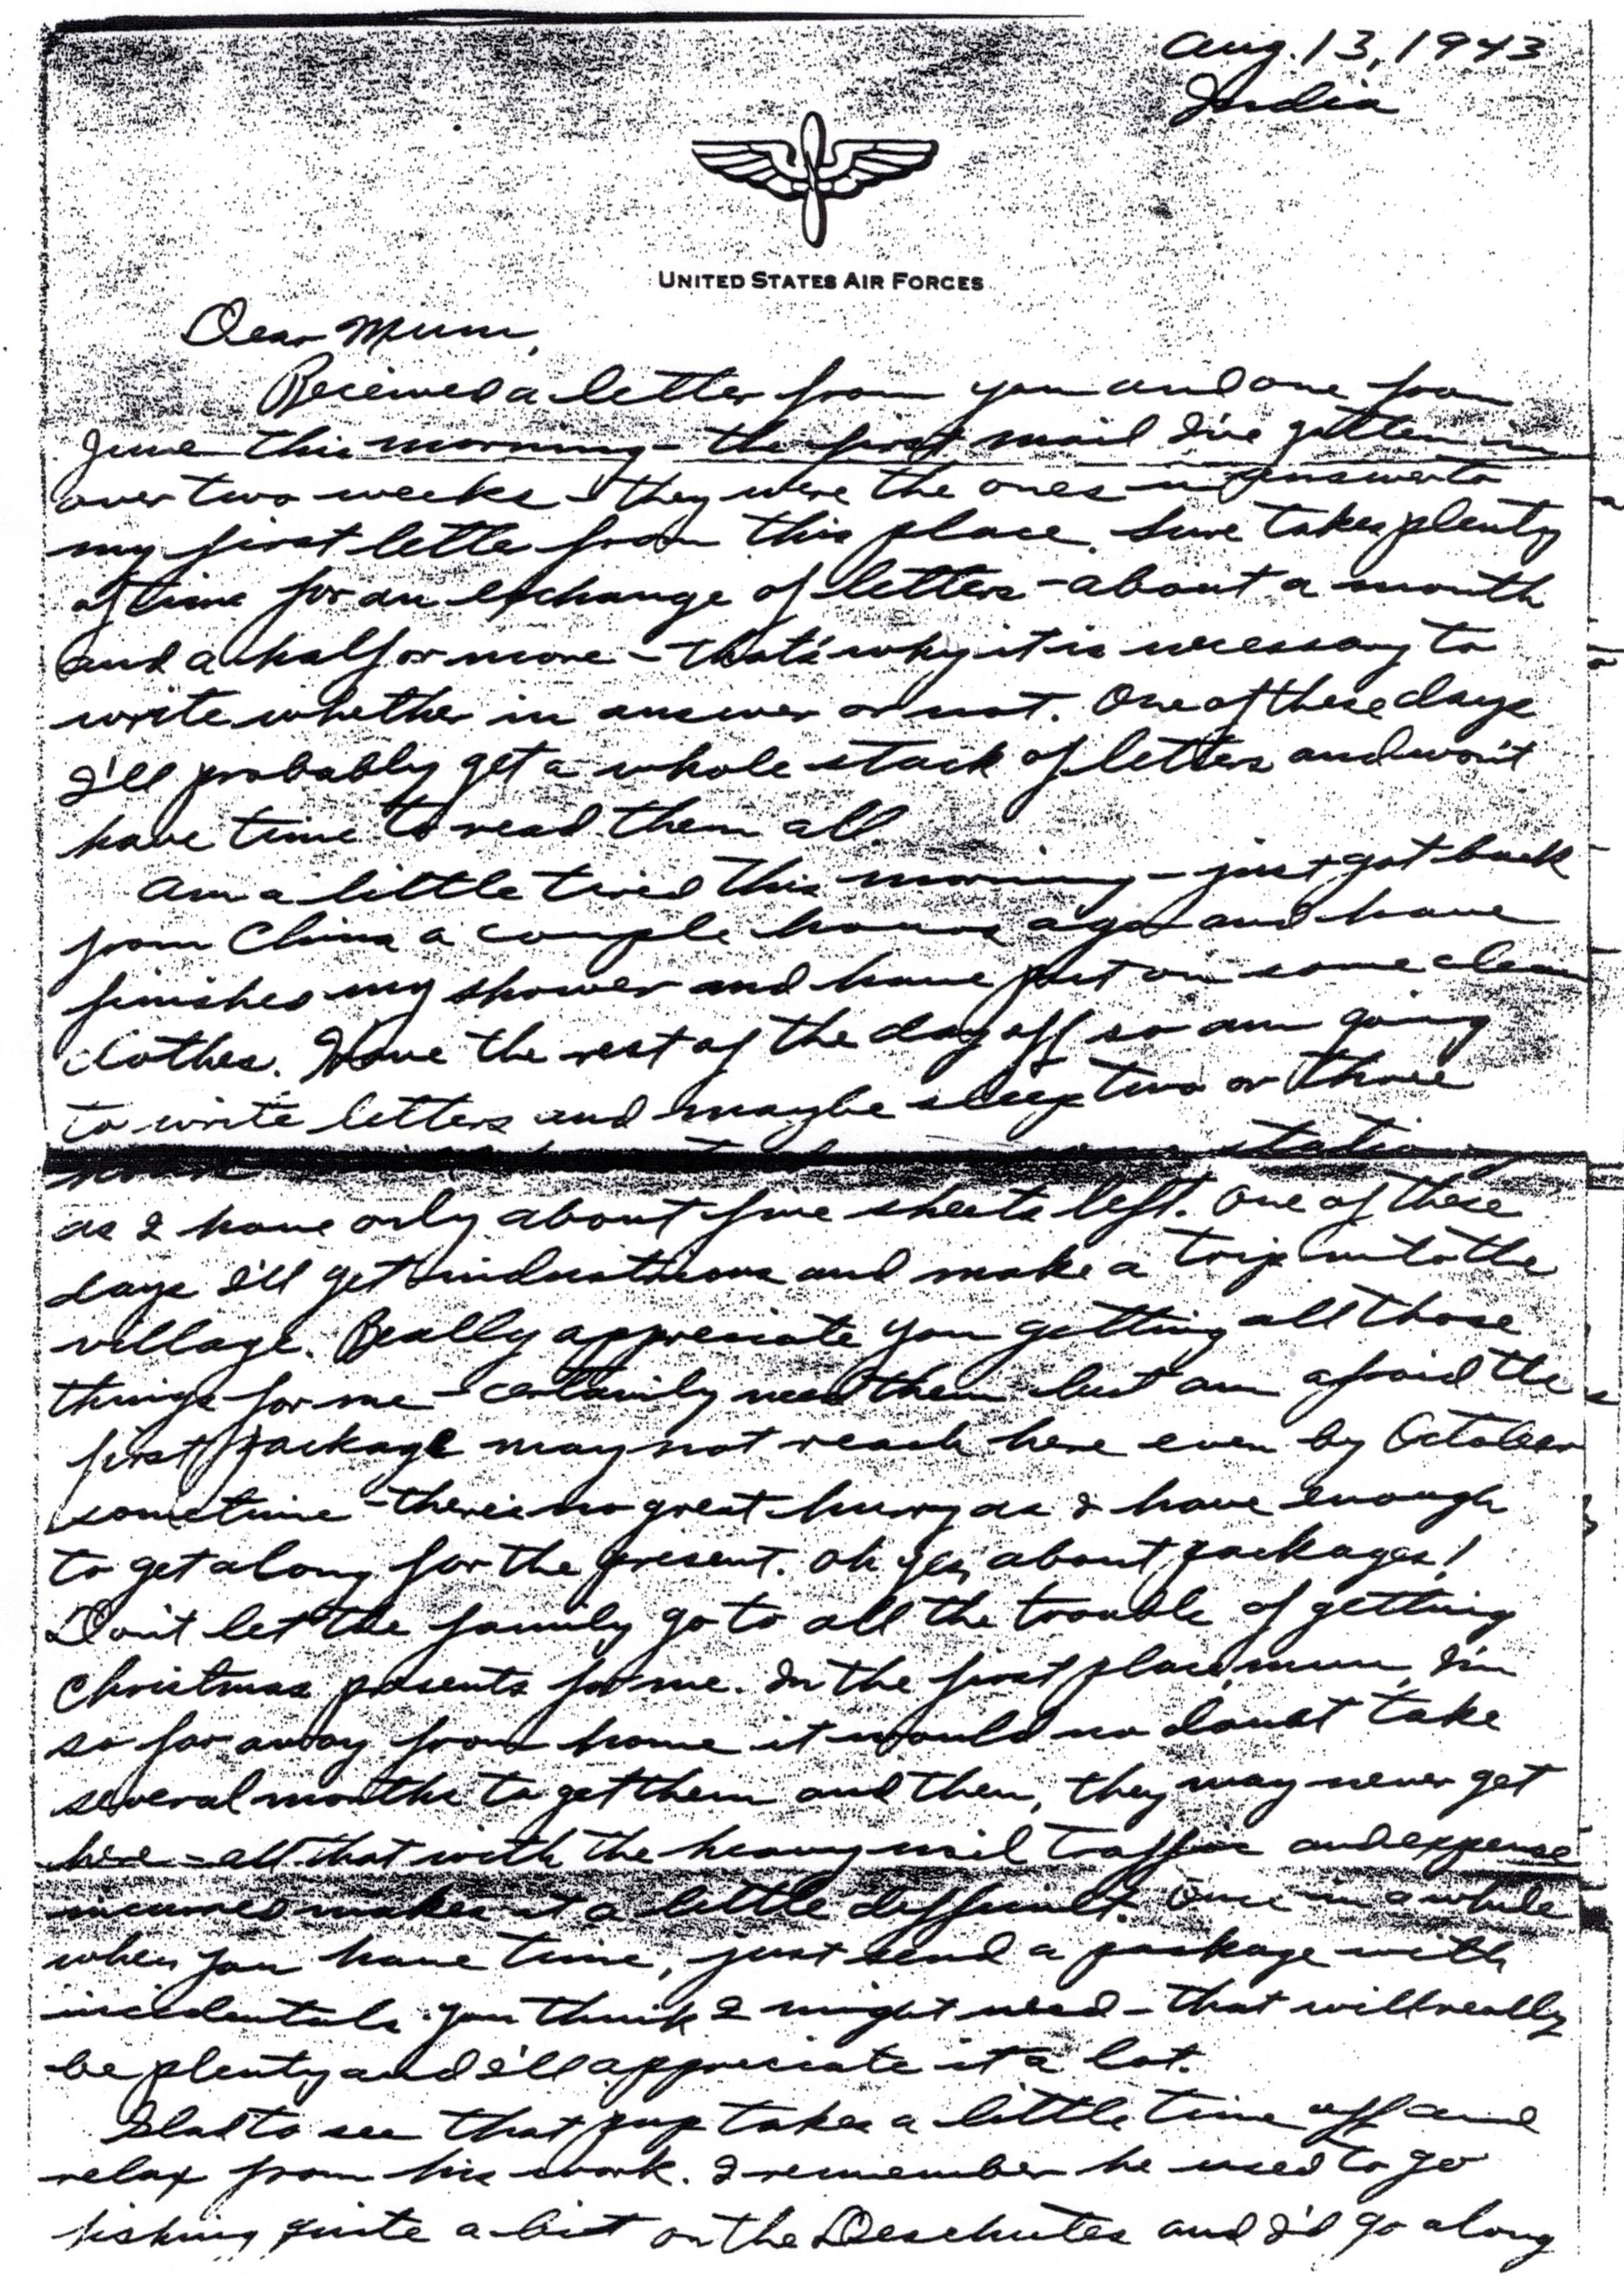 Aug. 13, 1943
India
UNITED STATES AIR FORCES
Dear Mum,
Received a letter from you and one from
June this morning - the first mail I've gotten in
over two weeks - they were the ones in answer to
my first lette from this place. Sure takes plenty
of time for an exchange of letters - about a month
and a half or more - that's why it is necessary to
write whether in answer or not. One of these days
I'll probably get a whole stack of letters and won't
have time to read them all.
Am a little tired this morning - just got back
from China a couple hours ago and have
finished my shower and have put on some clean
clothes. Have the rest of the day off so am going
to write letters and maybe sleep two or three
as I have only about five sheets left. One of these
days I'll get industrious and make a trip into the
village. Really appreciate you getting all those
things for me - certainly need them but am afraid the
first package may not reach here even by October
sometime - there's no great hurry as I have enough
to get along for the present. Oh yes, about packages!
Don't let the family go to all the trouble of getting
Christmas presents for me. In the first place, mum, I'm
so far away from home it would no doubt take
several months to get them and then, they may never get
here - all that with the heavy mail traffic and expense
incurred makes it a little difficult. Once in a while
when you have time, just send a package with
incidentals you think I might need - that will really
be plenty and I'll appreciate it a lot.
Glad to see that pop takes a little time off and
relax from his work. I remember he used to go
fishing quite a bit on the Deschutes and I'd go along